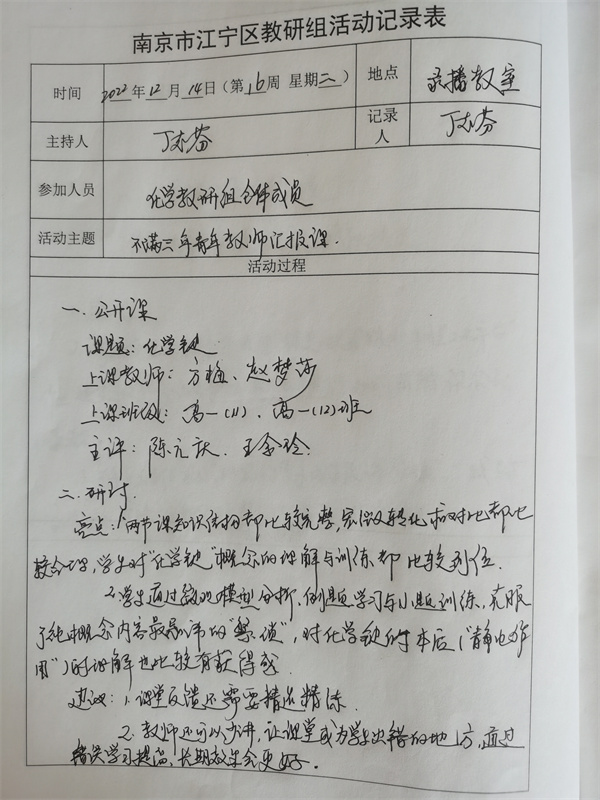 南京市江宁区教研组活动记录表
时间 2022年12月14日(第16周 星期二) 地点 录播教室
主持人 丁志芬 记录人 丁志芬
参加人员 化学教研组全体成员
活动主题 不满三年青年教师汇报课.
活动过程
一. 公开课
课题: 化学键
上课教师: 方 、赵梦莎
上课班级: 高一(11)、高一(12)班
主评: 陈元 、王 玲.
二. 研讨.
亮点: 1.两节课知识结构都比较完整,宏微转化和对比都比
较合理,学生对"化学键"概念的理解与训练都比较到位.
2.学生通过微观模型分析,例题学习与小题训练,克服
了纯概念内容最易 的" ",对化学键的本质("静电作
用")的理解也比较有获得感.
建议: 1.课堂反馈还需要精选精练.
2.教师还可以少讲,让课堂成为学生出错的地方,通过
错误学习提高,长期效果会更好.